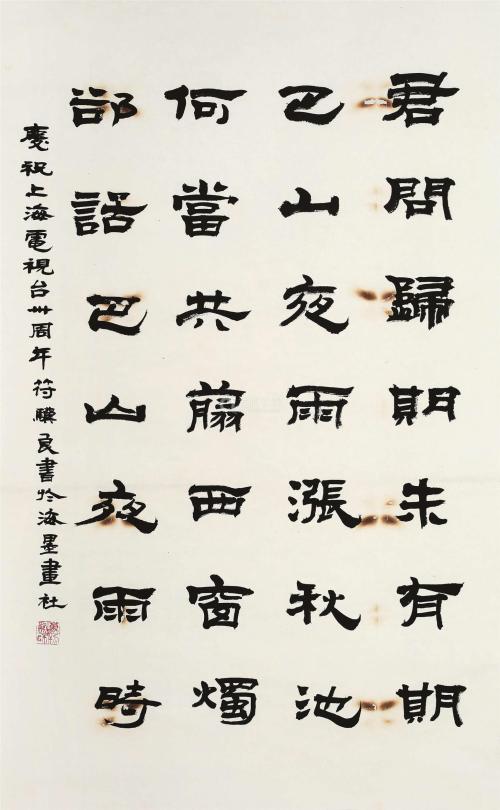 君問歸期未有期
巴山夜雨漲秋池
何當共翦西窗燭
郤話巴山夜雨時
慶祝上海電視台卅周年符驥良書於海墨畫社